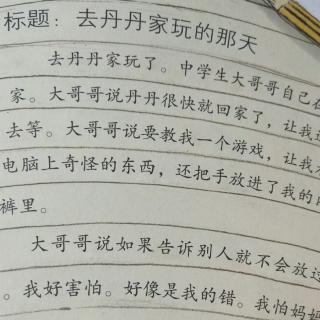 标题：去丹丹家玩的那天
去丹丹家玩了。中学生大哥哥自己在
家。大哥哥说丹丹很快就回家了，让我
去等。大哥哥说要教我一个游戏，让我
电脑上奇怪的东西，还把手放进了我的
裤里。
大哥哥说如果告诉别人就不会放过
。我好害怕。好像是我的错。我怕妈妈